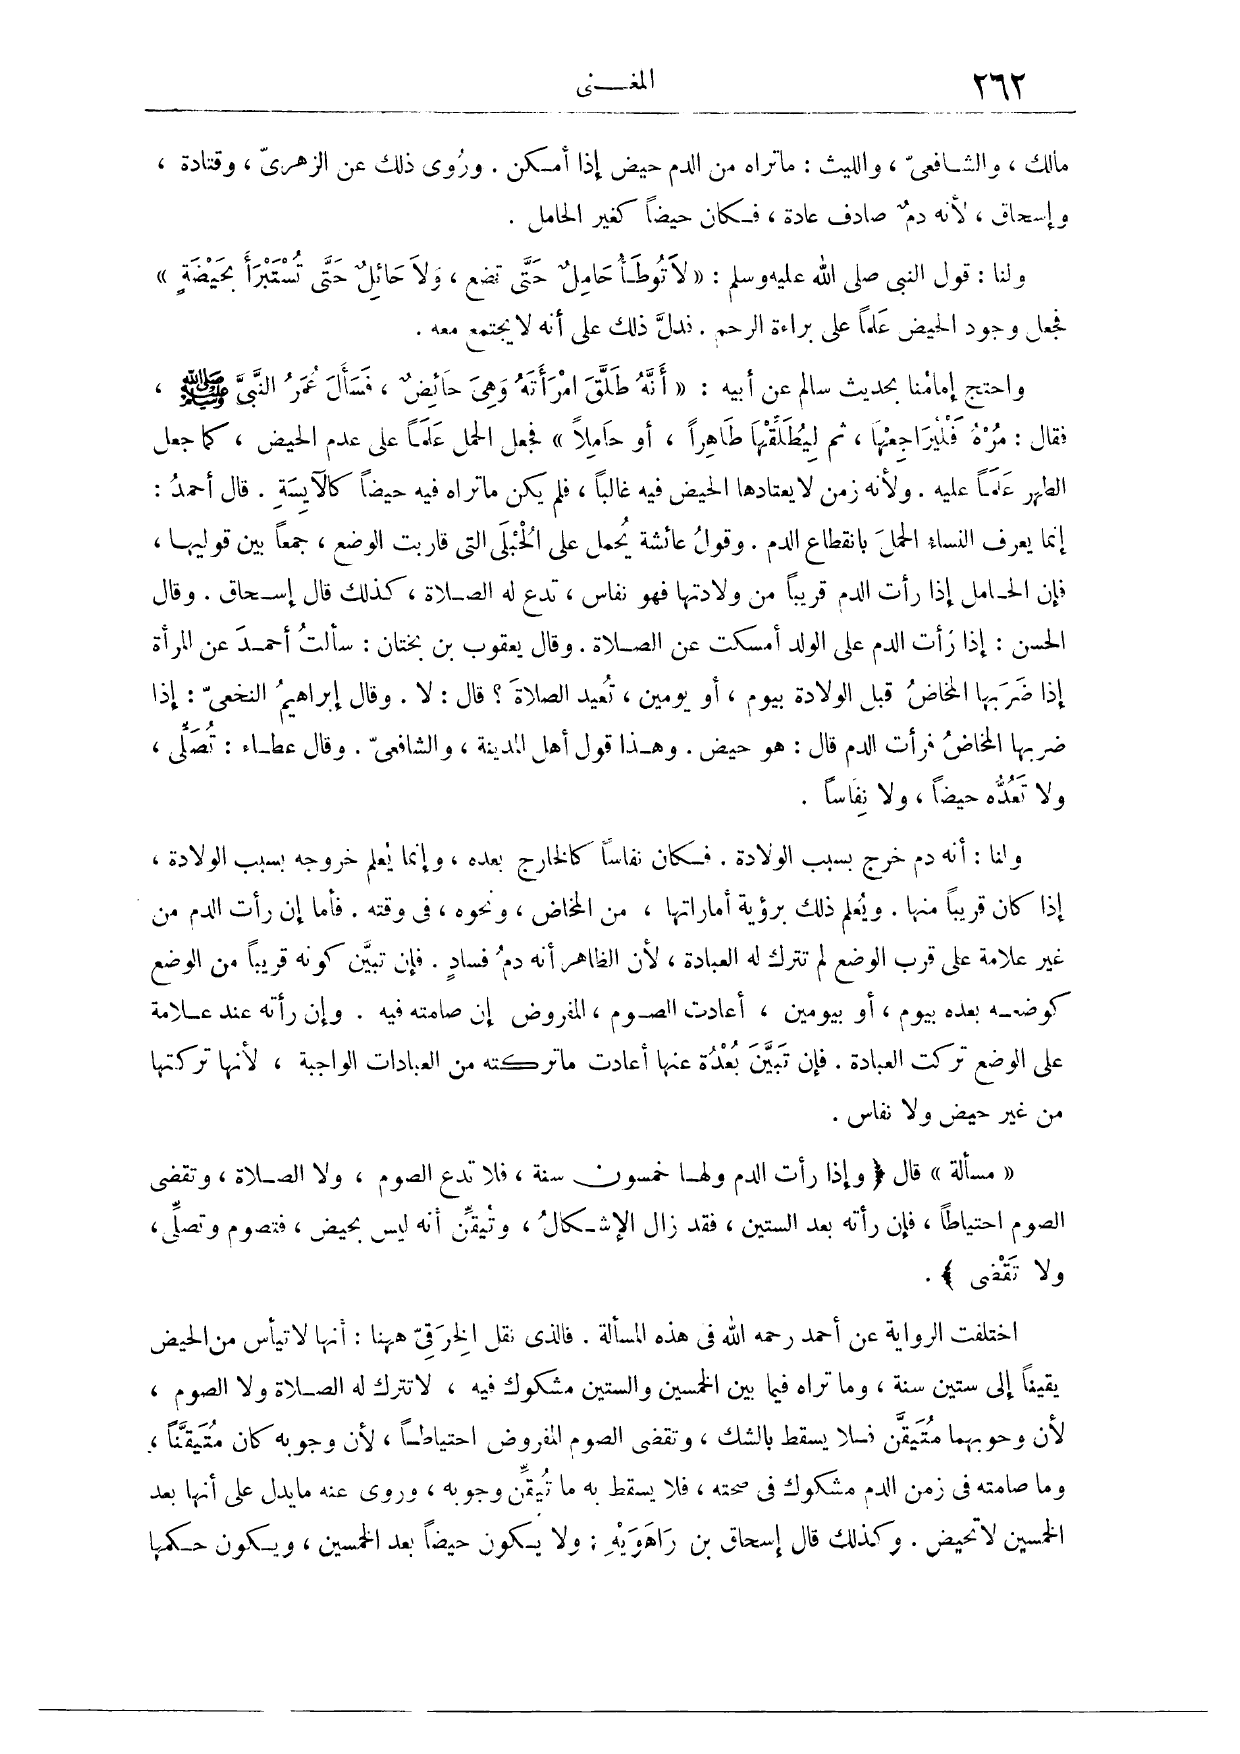 ٢٦٢
المغـــنى
مالك ، والشافعىّ ، والليث : ماتراه من الدم حيض إذا أمكن . ورُوى ذلك عن الزهرىّ ، وقتادة ،
وإسحاق ، لأنه دمٌ صادف عادة ، فكان حيضاً كغير الحامل .
ولنا : قول النبى صلى الله عليه وسلم : « لاَتُوطَأُ حَامِلٌ حَتَّى تضع ، وَلاَ حَائِلٌ حَتَّى تُسْتَبْرَأَ بِحَيْضَةٍ »
فجعل وجود الحيض عَلماً على براءة الرحم . فدلَّ ذلك على أنه لا يجتمع معه .
واحتج إمامُنا بحديث سالم عن أبيه : « أَنَّهُ طَلَّقَ امْرَأَتَهُ وَهِىَ حَائِضٌ ، فَسَأَلَ عُمَرُ النَّبِىَّ ﷺ ،
فقال : مُرْهُ فَلْيُرَاجِعْهَا ، ثم لِيُطَلِّقْهَا طَاهِراً ، أو حَامِلاً » فجعل الحمل عَلَماً على عدم الحيض ، كما جعل
الطهر عَلَماً عليه . ولأنه زمن لا يعتادها الحيض فيه غالباً ، فلم يكن ماتراه فيه حيضاً كالآيِسَةِ . قال أحمدُ :
إنما يعرف النساء الحملَ بانقطاع الدم . وقولُ عائشة يُحمل على الْحُبْلَى التى قاربت الوضع ، جمعاً بين قوليها ،
فإن الحامل إذا رأت الدم قريباً من ولادتها فهو نفاس ، تدع له الصلاة ، كذلك قال إسحاق . وقال
الحسن : إذا رَأت الدم على الولد أمسكت عن الصلاة . وقال يعقوب بن بختان : سألتُ أحمدَ عن المرأة
إذا ضَرَبها المخاضُ قبل الولادة بيوم ، أو يومين ، تُعيد الصلاةَ ؟ قال : لا . وقال إبراهيمُ النخعىّ : إذا
ضربها المخاضُ فرأت الدم قال : هو حيض . وهذا قول أهل المدينة ، والشافعىّ . وقال عطاء : تُصَلِّى ،
ولا تَعُدُّه حيضاً ، ولا نِفاساً .
ولنا : أنه دم خرج بسبب الولادة . فكان نفاساً كالخارج بعده ، وإنما يُعلم خروجه بسبب الولادة ،
إذا كان قريباً منها . ويُعلم ذلك برؤية أماراتها ، من المخاض ، ونحوه ، فى وقته . فأما إن رأت الدم من
غير علامة على قرب الوضع لم تترك له العبادة ، لأن الظاهر أنه دمُ فسادٍ . فإن تبيَّن كونه قريباً من الوضع
كوضعه بعده بيوم ، أو بيومين ، أعادت الصوم ، المفروض إن صامته فيه . وإن رأته عند علامة
على الوضع تركت العبادة . فإن تَبَيَّنَ بُعْدُهُ عنها أعادت ماتركته من العبادات الواجبة ، لأنها تركتها
من غير حيض ولا نفاس .
« مسألة » قال ﴿ وإذا رأت الدم ولها خمسون سنة ، فلا تدع الصوم ، ولا الصلاة ، وتقضى
الصوم احتياطاً ، فإن رأته بعد الستين ، فقد زال الإشكالُ ، وتُيقِّن أنه ليس بحيض ، فتصوم وتصلِّى،
ولا تَقْضى ﴾ .
اختلفت الرواية عن أحمد رحمه الله فى هذه المسألة . فالذى نقل الخِرَقىّ ههنا : أنها لا تيأس من الحيض
يقيناً إلى ستين سنة ، وما تراه فيما بين الخمسين والستين مشكوك فيه ، لاتترك له الصلاة ولا الصوم ،
لأن وجوبهما مُتَيقَّن فلا يسقط بالشك ، وتقضى الصوم المفروض احتياطاً ، لأن وجوبه كان مُتَيقَّناً ،
وما صامته فى زمن الدم مشكوك فى صحته ، فلا يسقط به ما تُيقِّن وجوبه ، وروى عنه مايدل على أنها بعد
الخمسين لاتحيض . وكذلك قال إسحاق بن رَاهَوَيْهِ : ولا يكون حيضاً بعد الخمسين ، ويكون حكمها